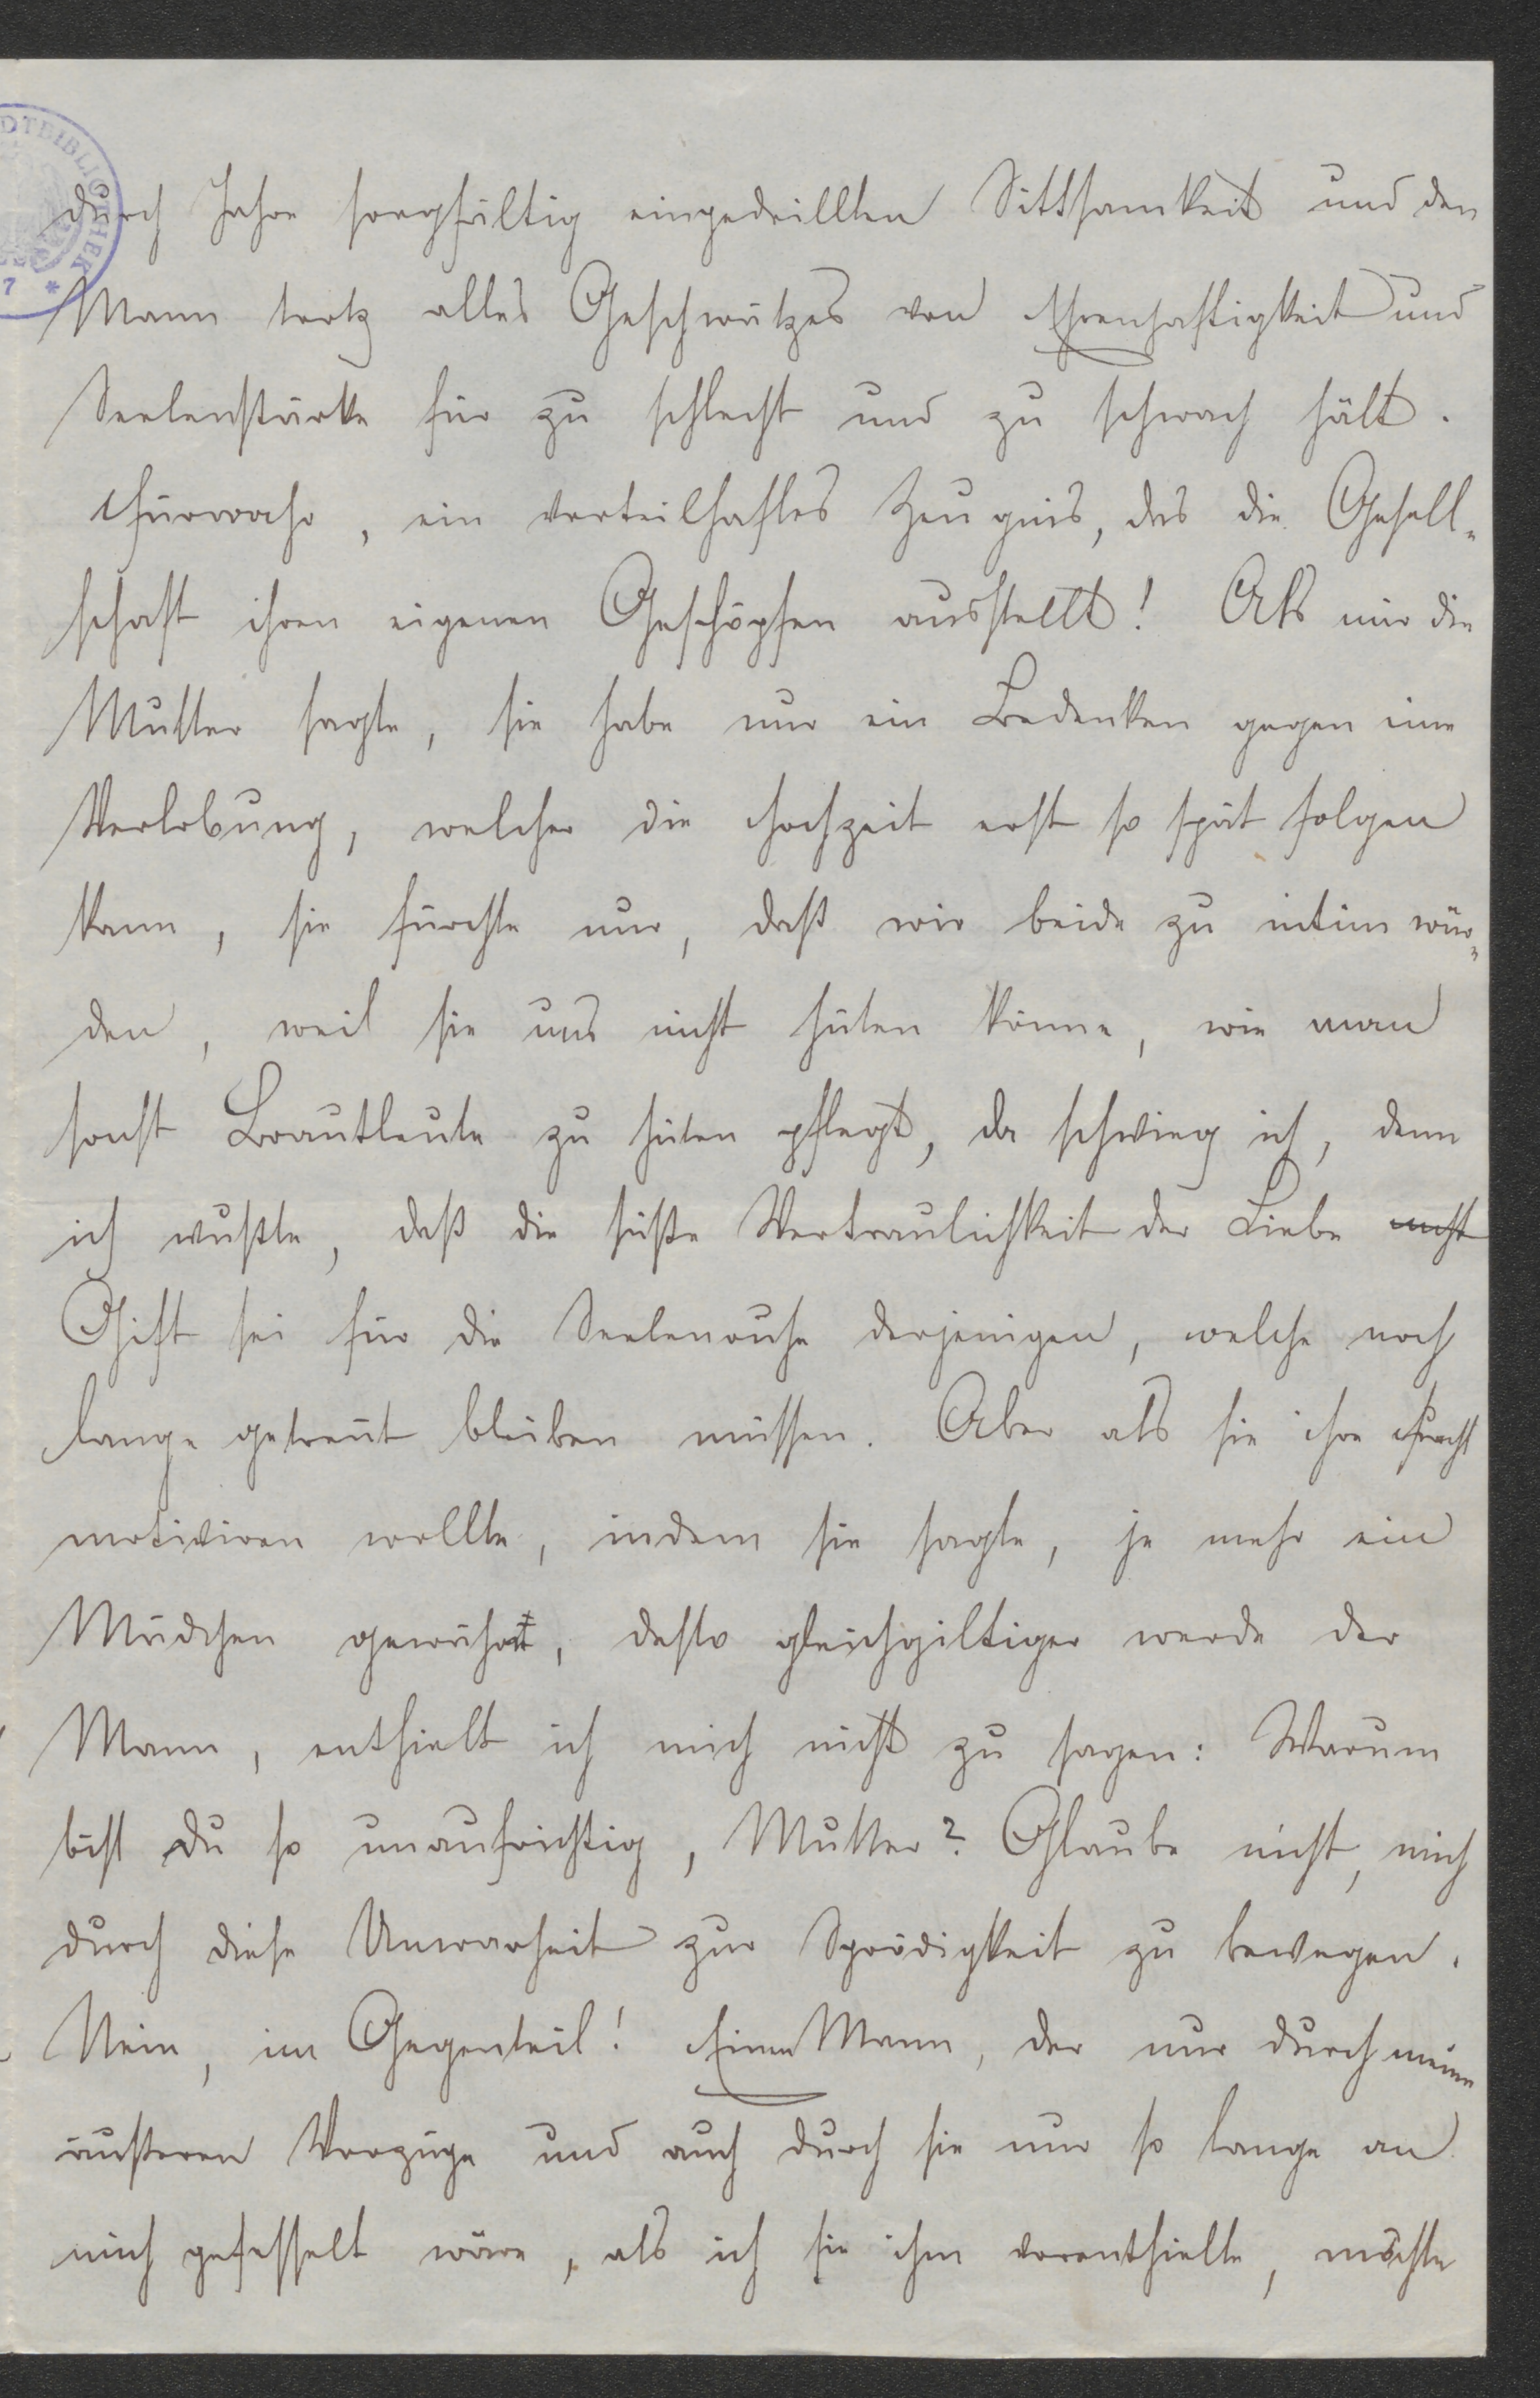 durch Jahre sorgfältig eingedrillten Sittsamkeit und den
Mann trotz alles Geschwätzes von Ehrenhaftigkeit und
Seelenstärke für zu schlecht und zu schwach hält.
Fürwahr, ein vorteilhaftes Zeugnis, das die Gesell-
schaft ihren eigenen Geschöpfen ausstellt! Als mir die
Mutter sagte, sie habe nur ein Bedenken gegen eine
Verlobung, welcher die Hochzeit erst so spät folgen
kann, sie fürchte nur, daß wir beide zu intim wür-
den, weil sie uns nicht hüten könne, wie man
sonst Brautleute zu hüten pflegt, da schwieg ich, denn
ich wußte, daß die süße Vertraulichkeit der Liebe nicht
Gift sei für die Seelenruhe derjenigen, welche noch
lange getrennt bleiben müssen. Aber als sie ihre Furcht
motiviren wollte, indem sie sagte, je mehr ein
Mädchen gewährt, desto gleichgiltiger werde der
Mann, enthielt ich mich nicht zu sagen: Warum
bist du so unaufrichtig, Mutter? Glaube nicht, mich
durch diese Unwarheit zur Sprödigkeit zu bewegen.
Nein, im Gegenteil! Einen Mann, der nur durch meine
äußeren Vorzüge und auch durch sie nur so lange an
mich gefesselt wäre, als ich sie ihm vorenthielte, möchte
DTBIBLIOTHEK
7 *